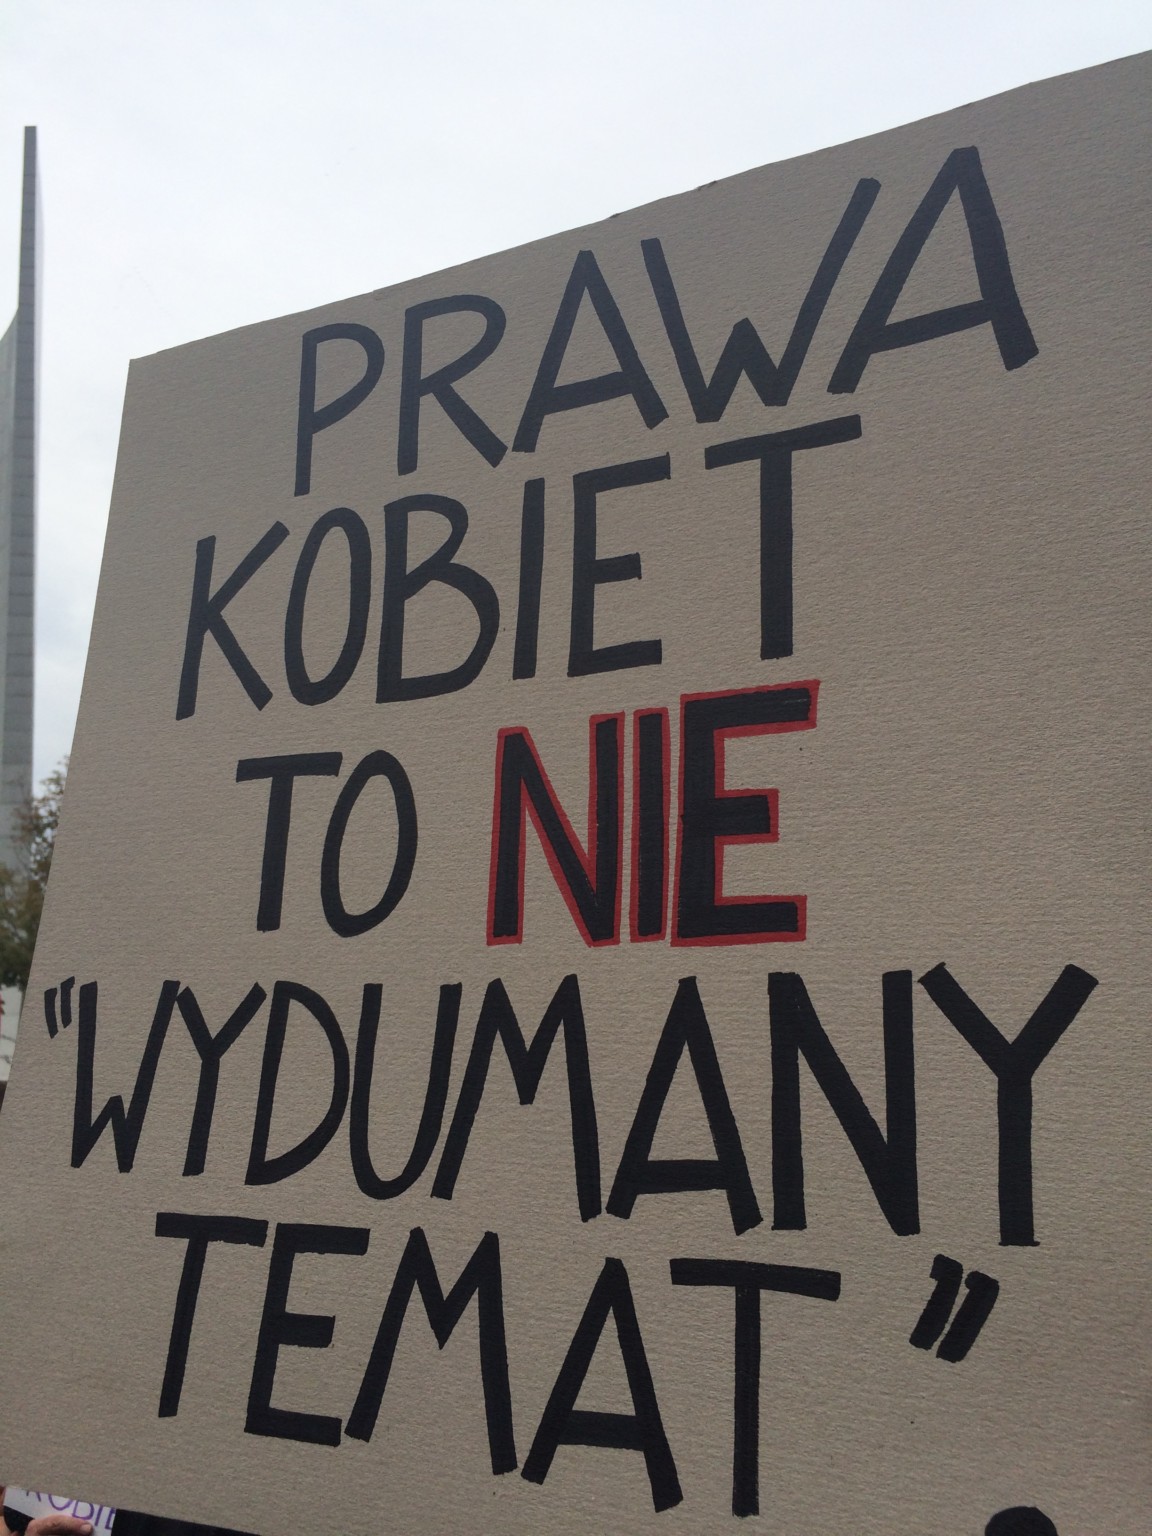 PRAWA
KOBIET
TO NIE
"WYDUMANY
TEMAT"